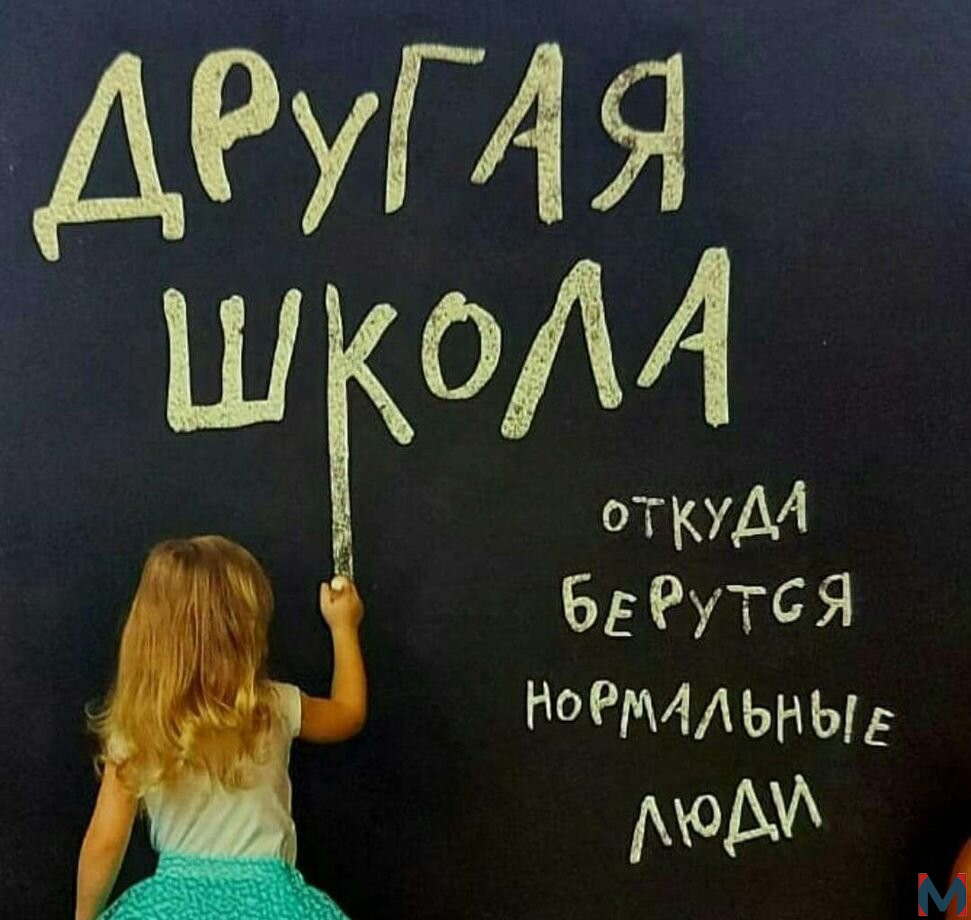 ДРУГАЯ
ШКОЛА
ОТКУДА
БЕРУТСЯ
НОРМАЛЬНЫЕ
ЛЮДИ
M